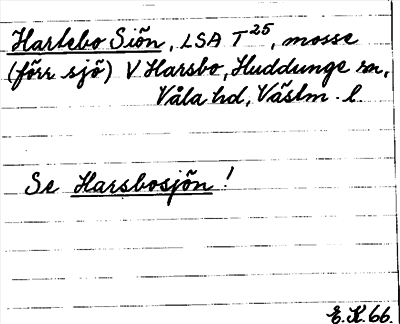 Hartebo Siön, LSA T²⁵, mosse
(förr sjö) V Harsbo, Huddunge sn,
Våla hd, Västm. l.
Se Harsbosjön!
E.K. 66.